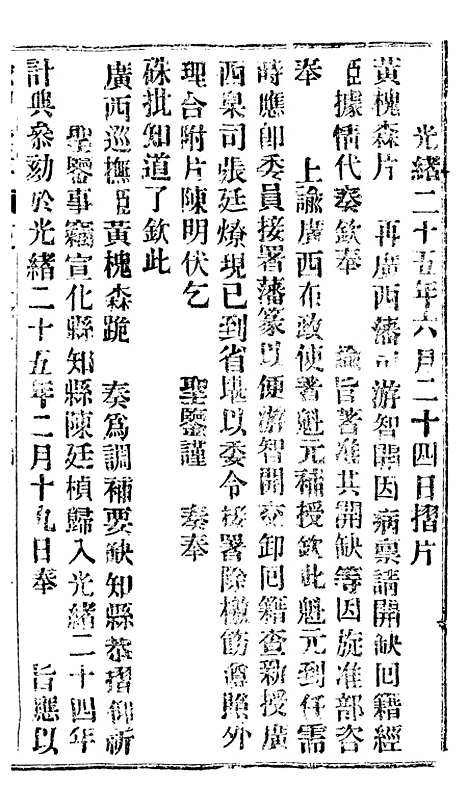 光緒二十五年六月二十四日摺片
黃槐森片 再廣西藩司游智開因病稟請開缺回籍經
臣據情代奏欽奉 諭旨著准其開缺等因旋准部咨
奉 上諭廣西布政使著魁元補授欽此魁元到任需
時應卽委員接署藩篆以便游智開交卸回籍查新授廣
西臬司張廷燎現已到省堪以委令接署除檄飭遵照外
理合附片陳明伏乞 聖鑒謹 奏奉
硃批知道了欽此
廣西巡撫臣黃槐森跪 奏為調補要缺知縣恭摺仰祈
聖鑒事竊宣化縣知縣陳廷楨歸入光緒二十四年
計典叅劾於光緒二十五年二月十九日奉 旨應以